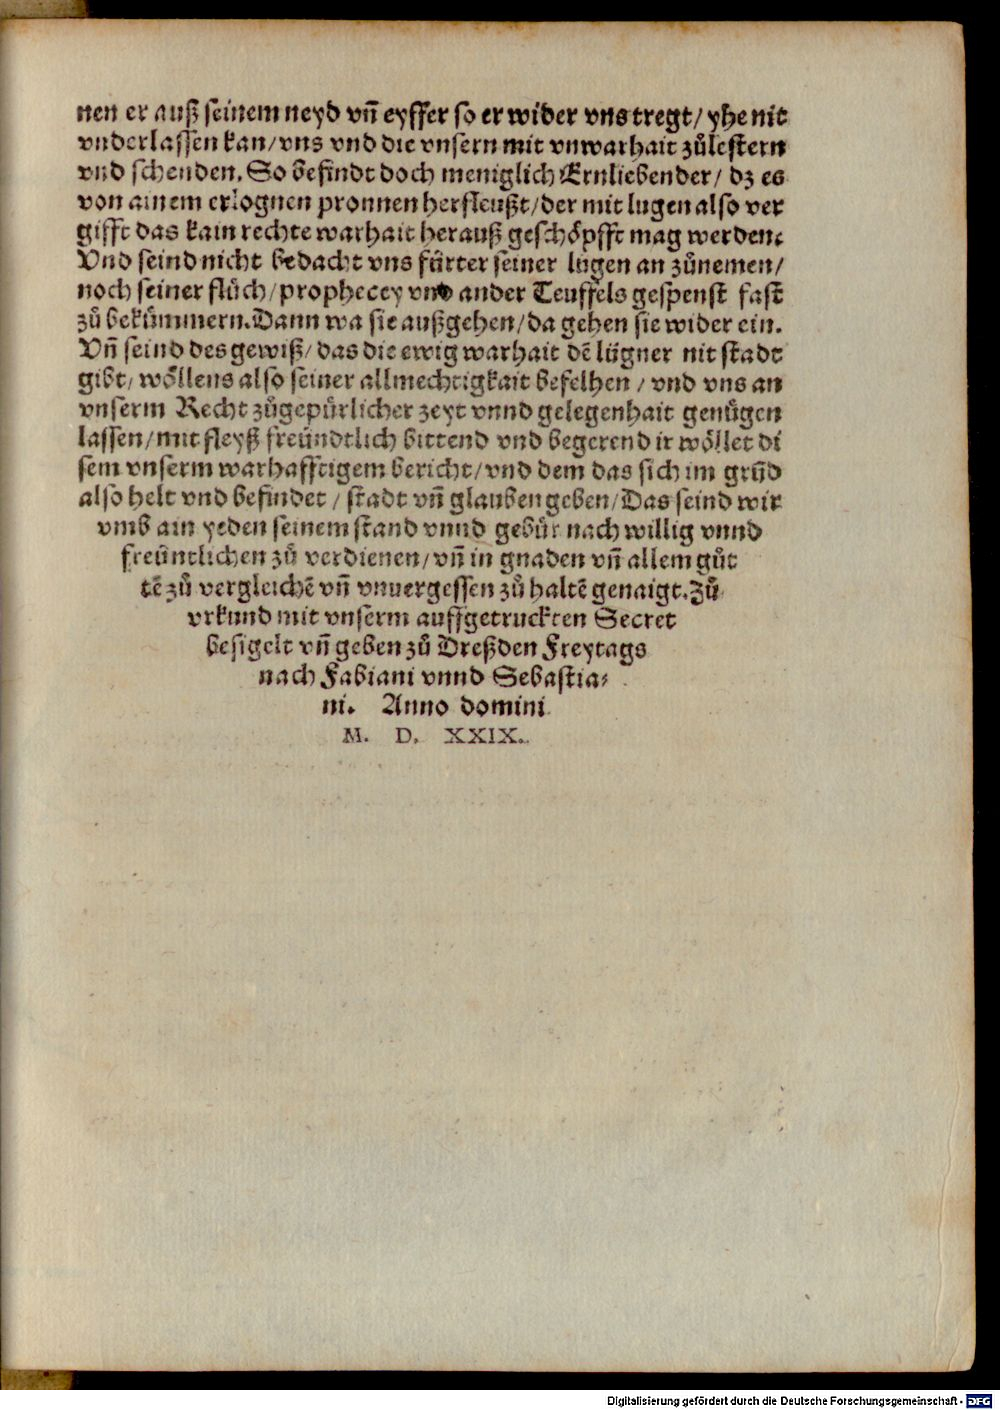 nen er auß seinem neyd vñ eyffer so er wider vns tregt/ yhe nit
vnderlassen kan/ vns vnd die vnsern mit vnwarhait zůlestern
vnd schenden. So befindt doch meniglich Ernliebender/ dz es
von ainem erlognen pronnen herfleußt/ der mit lugen also ver
gifft das kain rechte warhait herauß geschöpfft mag werden.
Vnd seind nicht bedacht vns fürter seiner lügen an zůnemen/
noch seiner flůch/ prophecey vnd ander Teuffels gespenst fast
zů bekümmern. Dann wa sie außgehen/ da gehen sie wider ein.
Vñ seind des gewiß/ das die ewig warhait dē lügner nit stadt
gibt/ wöllens also seiner allmechtigkait befelhen/ vnd vns an
vnserm Recht zůgepürlicher zeyt vnnd gelegenhait genügen
lassen/ mit fleyß freündtlich bittend vnd begerend ir wöllet di
sem vnserm warhafftigem bericht/ vnd dem das sich im grūd
also helt vnd befindet/ stadt vñ glauben geben/ Das seind wir
vmb ain yeden seinem stand vnnd gebür nach willig vnnd
freüntlichen zů verdienen/ vñ in gnaden vñ allem gůt
tē zů vergleichē vñ vnuergessen zů haltē genaigt. Zů
vrkund mit vnserm auffgetruckten Secret
besigelt vñ geben zů Dreßden Freytags
nach Fabiani vnnd Sebastia⸗
ni. Anno domini
M. D. XXIX.
Digitalisierung gefördert durch die Deutsche Forschungsgemeinschaft - DFG